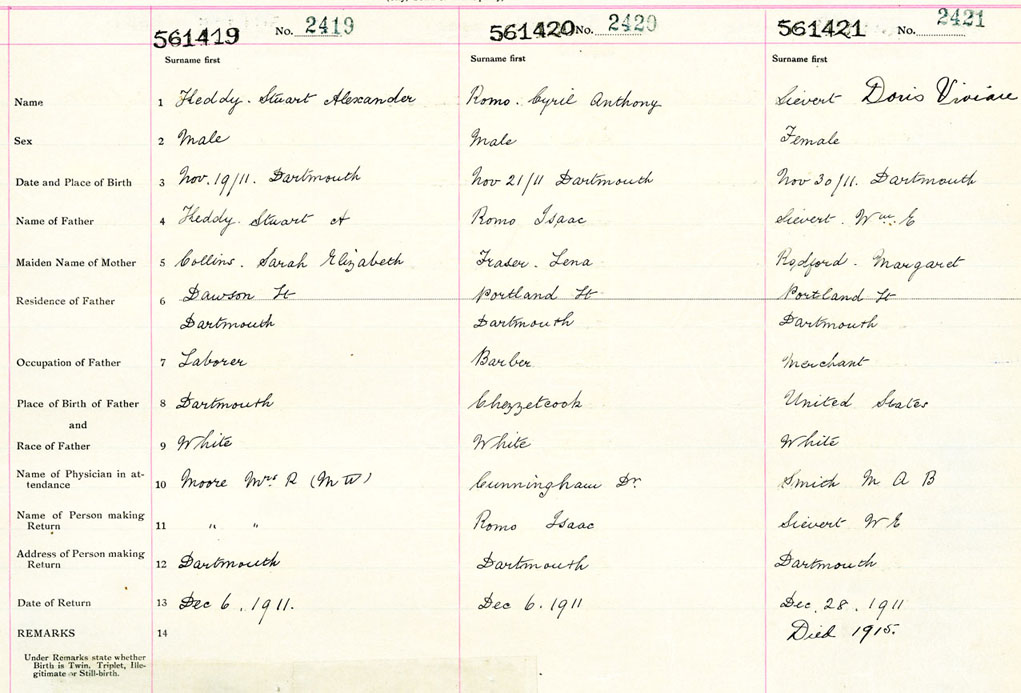 561419 No. 2419 561420 No. 2420 561421 No. 2421
Surname first Surname first Surname first
Name 1 Heddy. Stuart Alexander Romo. Cyril Anthony Sievert Doris Viviare
Sex 2 Male Male Female
Date and Place of Birth 3 Nov. 19/11. Dartmouth Nov 21/11 Dartmouth Nov 30/11. Dartmouth
Name of Father 4 Heddy. Stuart A Romo Isaac Sievert. Wm E
Maiden Name of Mother 5 Collins. Sarah Elizabeth Fraser. Lena Redford. Margaret
Residence of Father 6 Dawson St Portland St Portland St
Dartmouth Dartmouth Dartmouth
Occupation of Father 7 Laborer Barber Merchant
Place of Birth of Father 8 Dartmouth Chezzetcook United States
and
Race of Father 9 White White White
Name of Physician in at-
tendance 10 Moore Mrs R (M W) Cunningham Dr. Smith M A B
Name of Person making
Return 11 " " Romo Isaac Sievert W E
Address of Person making
Return 12 Dartmouth Dartmouth Dartmouth
Date of Return 13 Dec 6. 1911. Dec 6. 1911 Dec. 28. 1911
REMARKS 14 Died 1915.
Under Remarks state whether
Birth is Twin, Triplet, Ille-
gitimate or Still-birth.